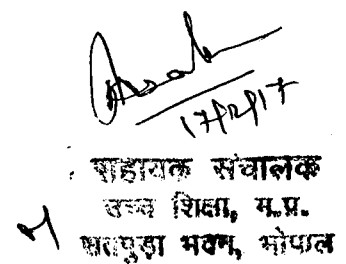 17/2/17
सहायक संचालक
उच्च शिक्षा, म.प्र.
सतपुड़ा भवन, भोपाल